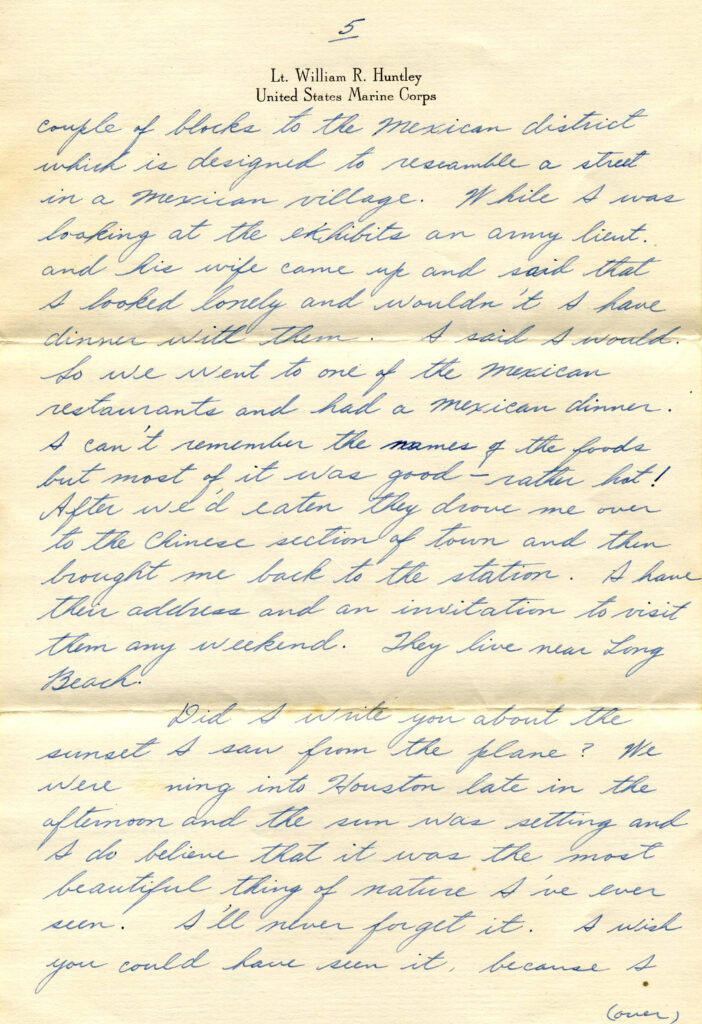 5
Lt. William R. Huntley
United States Marine Corps
couple of blocks to the Mexican district
which is designed to reseamble a street
in a Mexican village. While I was
looking at the exhibits an army lieut.
and his wife came up and said that
I looked lonely and wouldn't I have
dinner with them. I said I would.
So we went to one of the Mexican
restaurants and had a Mexican dinner.
I can't remember the names of the foods
but most of it was good – rather hot!
After we'd eaten they drove me over
to the Chinese section of town and then
brought me back to the station. I have
their address and an invitation to visit
them any weekend. They live near Long
Beach.
Did I write you about the
sunset I saw from the plane? We
were ning into Houston late in the
afternoon and the sun was setting and
I do believe that it was the most
beautiful thing of nature I've ever
seen. I'll never forget it. I wish
you could have seen it, because I
(over)